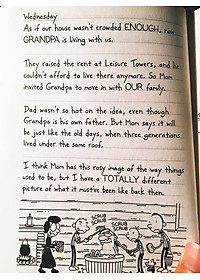 Wednesday
As if our house wasn't crowded ENOUGH, now
GRANDPA is living with us.
They raised the rent at Leisure Towers, and he
couldn't afford to live there anymore. So Mom
invited Grandpa to move in with OUR family.
Dad wasn't so hot on the idea, even though
Grandpa is his own father. But Mom says it will
be just like the old days, when three generations
lived under the same roof.
I think Mom has this rosy image of the way things
used to be, but I have a TOTALLY different
picture of what it must've been like back then.
SCRUB
SCRUB
SCRUB
SCRUB